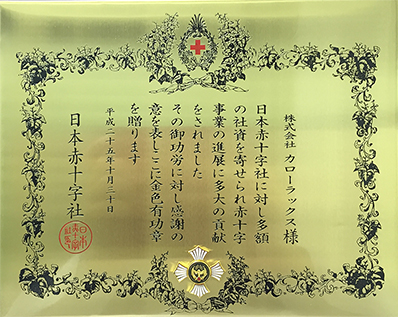 株式会社 カローラックス 様
日本赤十字社に対し多額
の社資を寄せられ赤十字
事業の進展に多大の貢献
をされました
その御功労に対し感謝の
意を表しここに金色有功章
を贈ります
平成二十五年十月二十日
日本赤十字社